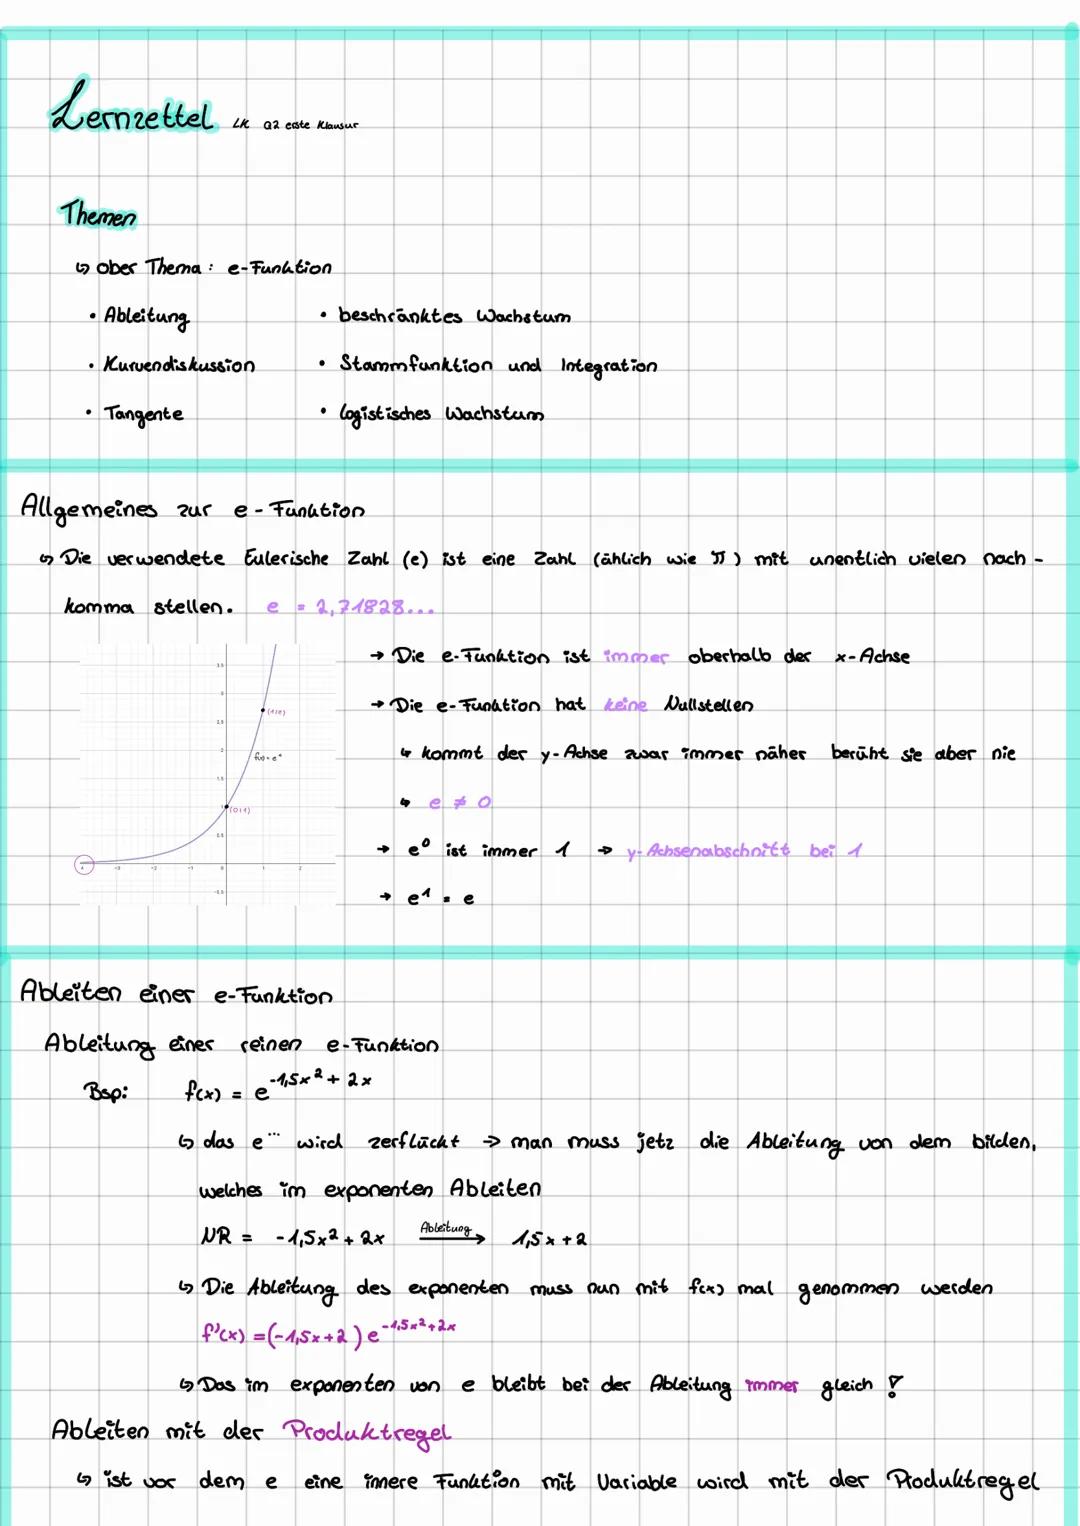 Lernzettel LK Q2 erste Klausur
Themen
↳ ober Thema : e-Funktion
• Ableitung • beschränktes Wachstum
• Kurvendiskussion • Stammfunktion und Integration
• Tangente • logistisches Wachstum
Allgemeines zur e-Funktion
↳ Die verwendete Eulerische Zahl (e) ist eine Zahl (ählich wie π) mit unentlich vielen nach-
komma stellen. e = 2,71828...
→ Die e-Funktion ist immer oberhalb der x-Achse
→ Die e-Funktion hat keine Nullstellen
↳ kommt der y-Achse zwar immer näher berüht sie aber nie
↳ e ≠ 0
→ e⁰ ist immer 1 → y-Achsenabschnitt bei 1
→ e¹ = e
3.5
3
2.5
(1|e)
2
f(x) = eˣ
1.5
1
(0|1)
0.5
-4 -3 -2 -1 0 1 2
-0.5
Ableiten einer e-Funktion
Ableitung einer reinen e-Funktion
Bsp: f(x) = e^-1,5x² + 2x
↳ das e^... wird zerflückt → man muss jetz die Ableitung von dem bilden,
welches im exponenten Ableiten
NR = -1,5x² + 2x Ableitung → 1,5x + 2
↳ Die Ableitung des exponenten muss nun mit f(x) mal genommen werden
f'(x) = (-1,5x + 2) e^-1,5x² + 2x
↳ Das im exponenten von e bleibt bei der Ableitung immer gleich !
Ableiten mit der Produktregel
↳ ist vor dem e eine innere Funktion mit Variable wird mit der Produktregel